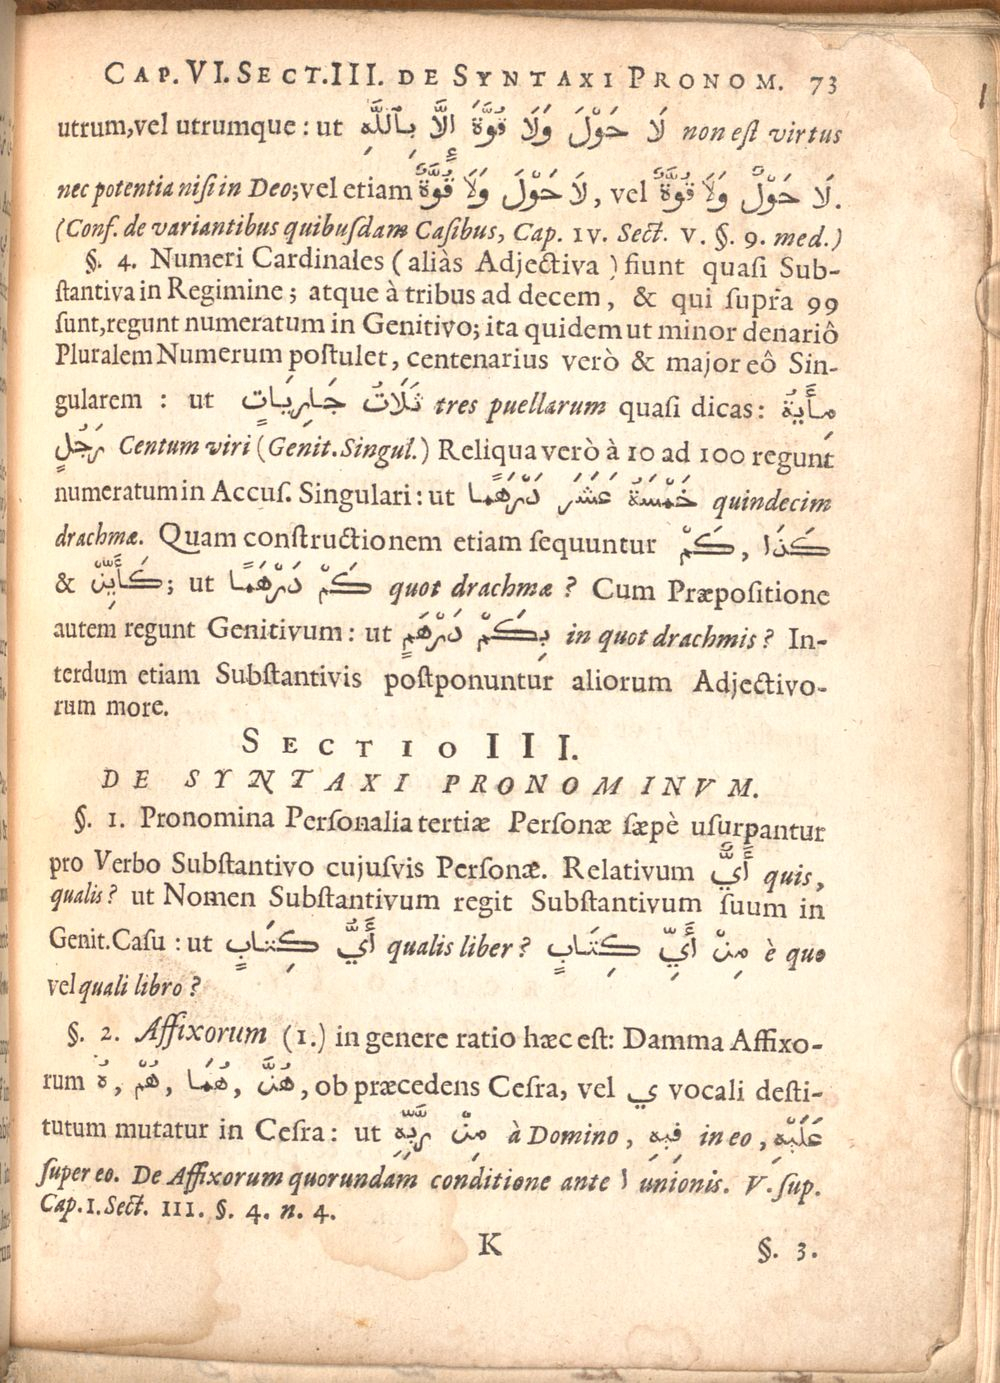 CAP. VI. SECT. III. DE SYNTAXI PRONOM. 73
utrum, vel utrumque : ut لَا حَوْلَ وَلَا قُوَّةَ إِلَّا بِٱللَّهِ non est virtus
nec potentia nisi in Deo; vel etiam لَا حَوْلَ وَلَا قُوَّةٌ, vel لَا حَوْلٌ وَلَا قُوَّةٌ.
(Conf. de variantibus quibusdam Casibus, Cap. IV. Sect. V. §. 9. med.)
§. 4. Numeri Cardinales ( aliàs Adjectiva ) fiunt quasi Sub-
stantiva in Regimine ; atque à tribus ad decem , & qui supra 99
sunt, regunt numeratum in Genitivo; ita quidem ut minor denariô
Pluralem Numerum postulet, centenarius verò & major eô Sin-
gularem : ut ثَلَاثُ جَارِيَاتٍ tres puellarum quasi dicas: مِأَيَةُ
رَجُلٍ Centum viri (Genit. Singul.) Reliqua verò à 10 ad 100 regunt
numeratum in Accus. Singulari : ut خَمْسَةُ عَشَرَ دَرْهَمًا quindecim
drachmæ. Quam constructionem etiam sequuntur كَذَا , كَمْ,
& كَأَيِّنْ; ut كَمْ دَرْهَمًا quot drachmæ ? Cum Præpositione
autem regunt Genitivum : ut بِكَمْ دَرْهَمٍ in quot drachmis ? In-
terdum etiam Substantivis postponuntur aliorum Adjectivo-
rum more.
SECTIO III.
DE SYNTAXI PRONOMINVM.
§. 1. Pronomina Personalia tertiæ Personæ sæpè usurpantur
pro Verbo Substantivo cujusvis Personæ. Relativum أَيٌّ quis,
qualis ? ut Nomen Substantivum regit Substantivum suum in
Genit. Casu : ut أَيُّ كِتَابٍ qualis liber ? مِنْ أَيِّ كِتَابٍ è quo
vel quali libro ?
§. 2. Affixorum (1.) in genere ratio hæc est: Damma Affixo-
rum هُ, هُمْ, هُمَا, هُنَّ, ob præcedens Cesra, vel ي vocali desti-
tutum mutatur in Cesra : ut مِنْ رَبِّهِ à Domino, فِيهِ in eo, عَلَيْهِ
super eo. De Affixorum quorundam conditione ante ا unionis. V. sup.
Cap. I. Sect. III. §. 4. n. 4.
K §. 3.